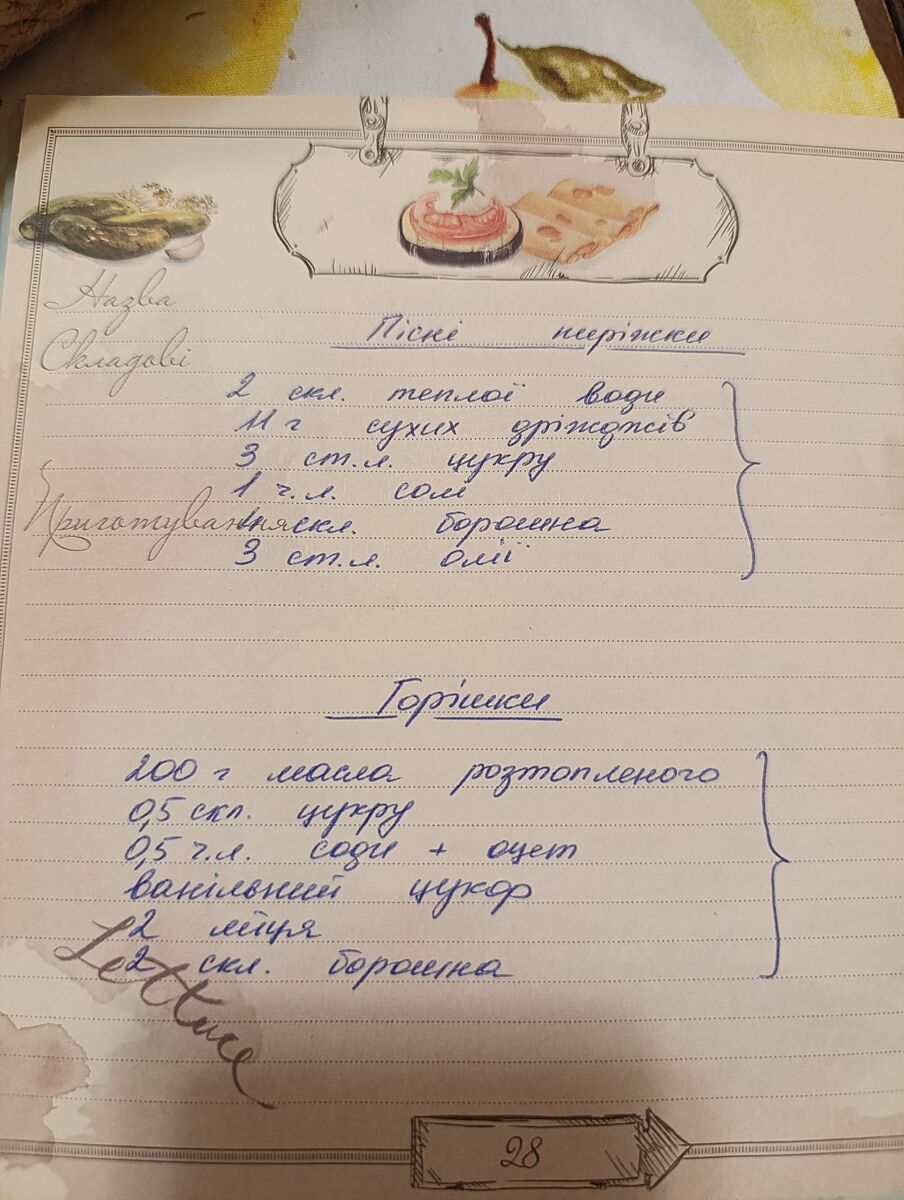 Назва
Пісні пиріжки
Складові
2 скл. теплої води
11 г сухих дріжджів
3 ст.л. цукру
1 ч.л. солі
Приготування
4 скл. борошна
3 ст.л. олії
Горішки
200 г масла розтопленого
0,5 скл. цукру
0,5 ч.л. соди + оцет
ванільний цукор
2 яйця
2 скл. борошна
Lettuce
28